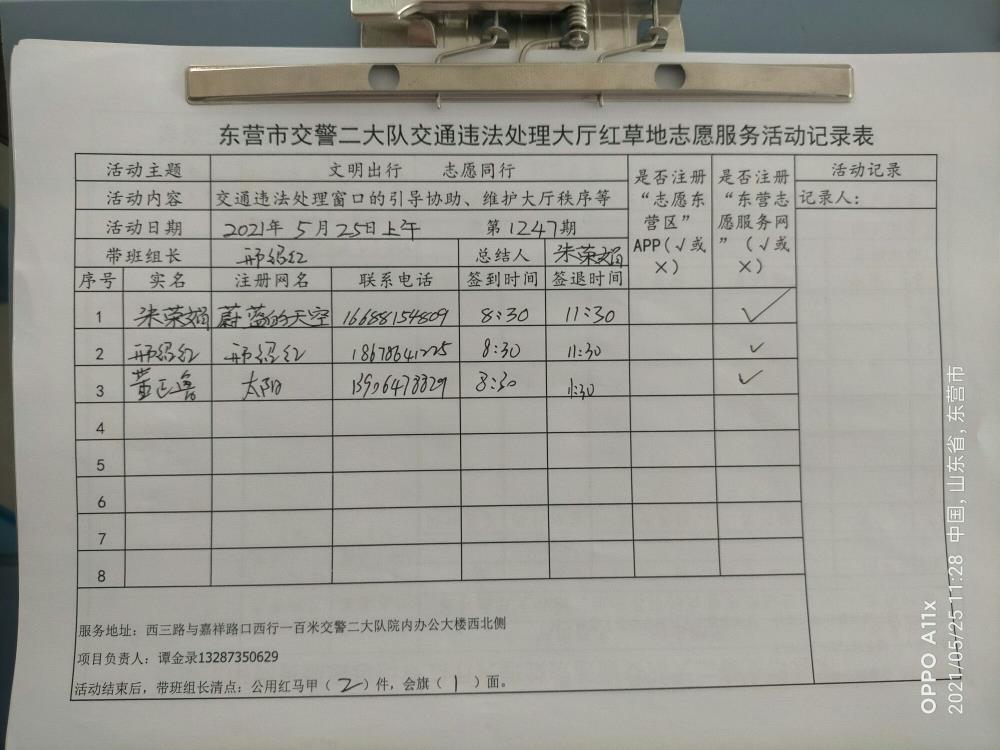 东营市交警二大队交通违法处理大厅红草地志愿服务活动记录表
活动主题 文明出行 志愿同行 是否注册“志愿东营区”APP(√或×) 是否注册“东营志愿服务网”(√或×) 活动记录
活动内容 交通违法处理窗口的引导协助、维护大厅秩序等 记录人:
活动日期 2021年 5月25日上午 第1247期
带班组长 邢绍红 总结人 朱荣娟
序号 实名 注册网名 联系电话 签到时间 签退时间
1 朱荣娟 蔚蓝的天空 16688154809 8:30 11:30 √
2 邢绍红 邢绍红 18678641225 8:30 11:30 √
3 董正鲁 太阳 13906478329 8:30 11:30 √
4
5
6
7
8
服务地址:西三路与嘉祥路口西行一百米交警二大队院内办公大楼西北侧
项目负责人:谭金录13287350629
活动结束后,带班组长清点:公用红马甲(2)件,会旗(1)面。
OPPO A11x
2021/05/25 11:28 中国,山东省,东营市